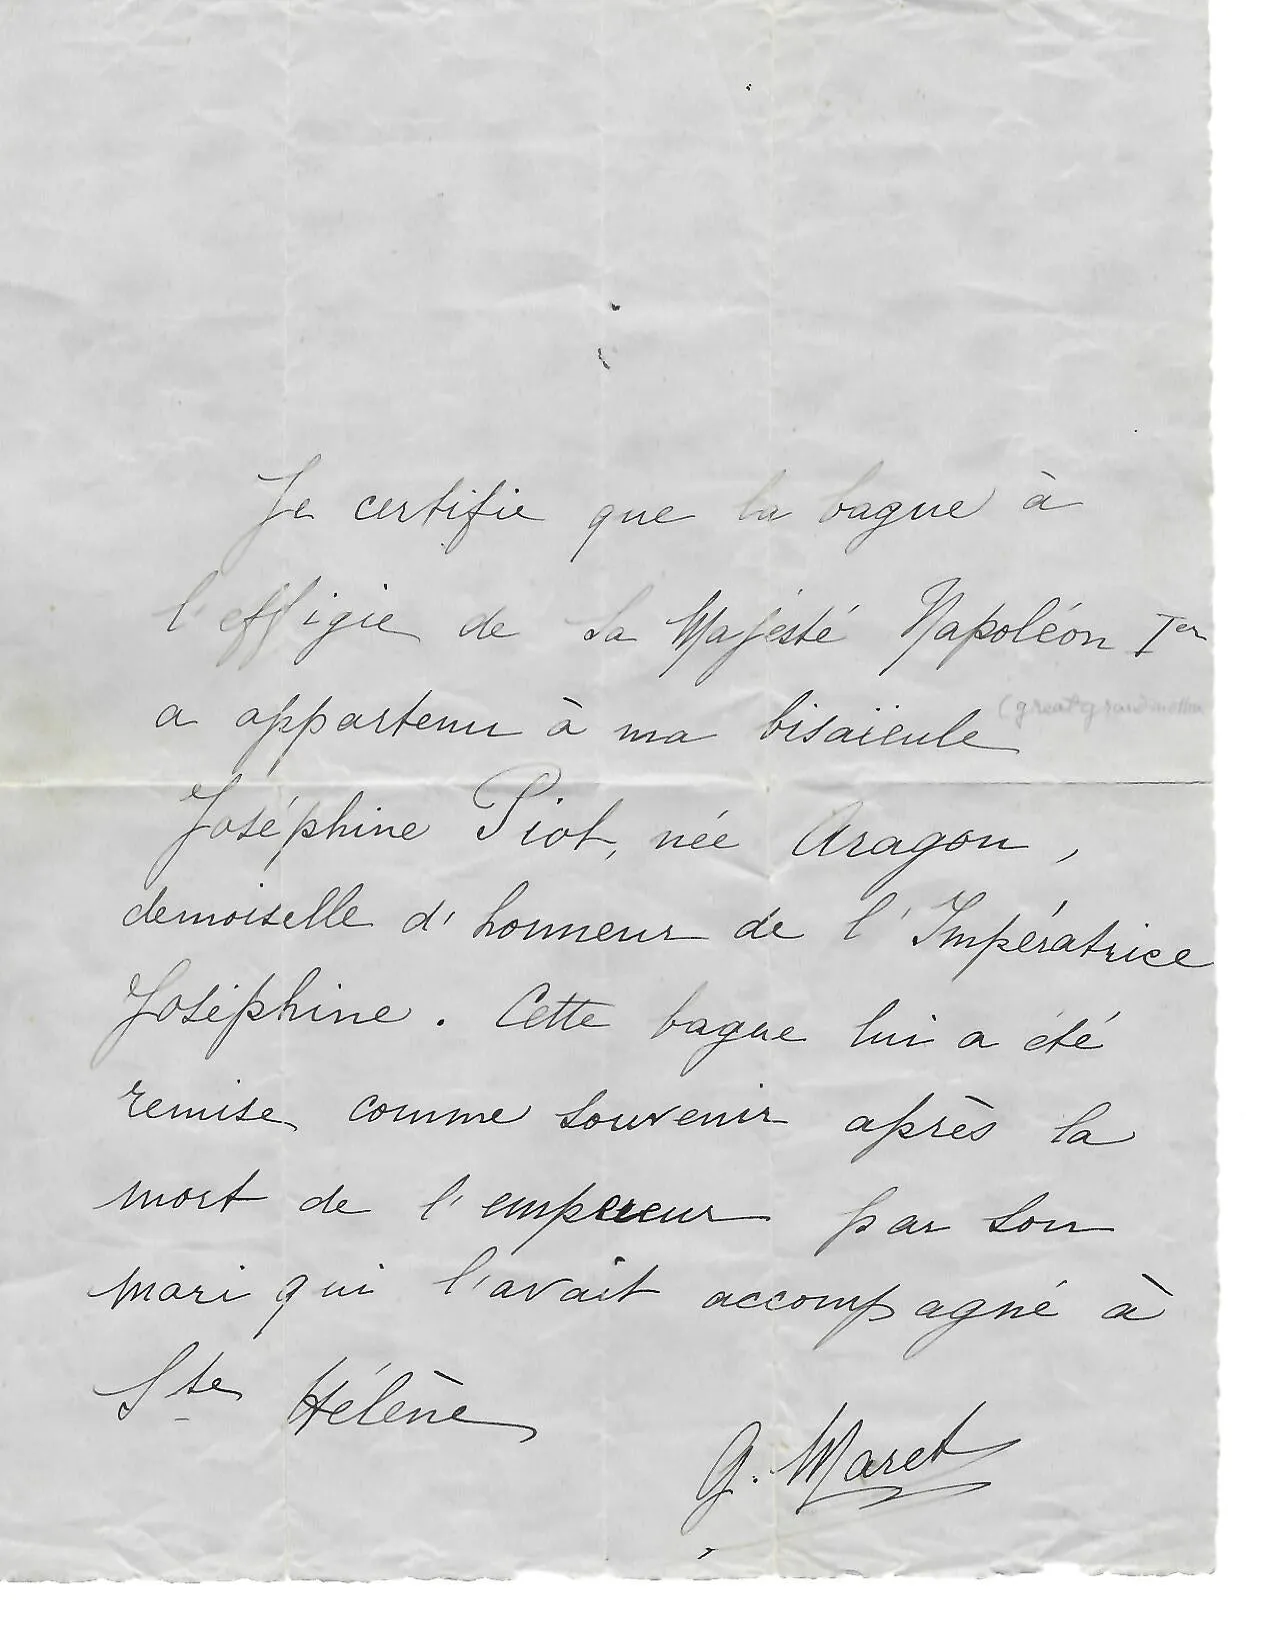 Je certifie que la bague à
l'effigie de Sa Majesté Napoléon Ier
a appartenu à ma bisaïeule (great grandmother
Joséphine Piot, née Aragon,
demoiselle d'honneur de l'Impératrice
Joséphine. Cette bague lui a été
remise comme souvenir après la
mort de l'empereur par son
mari qui l'avait accompagné à
Ste Hélène
G. Maret